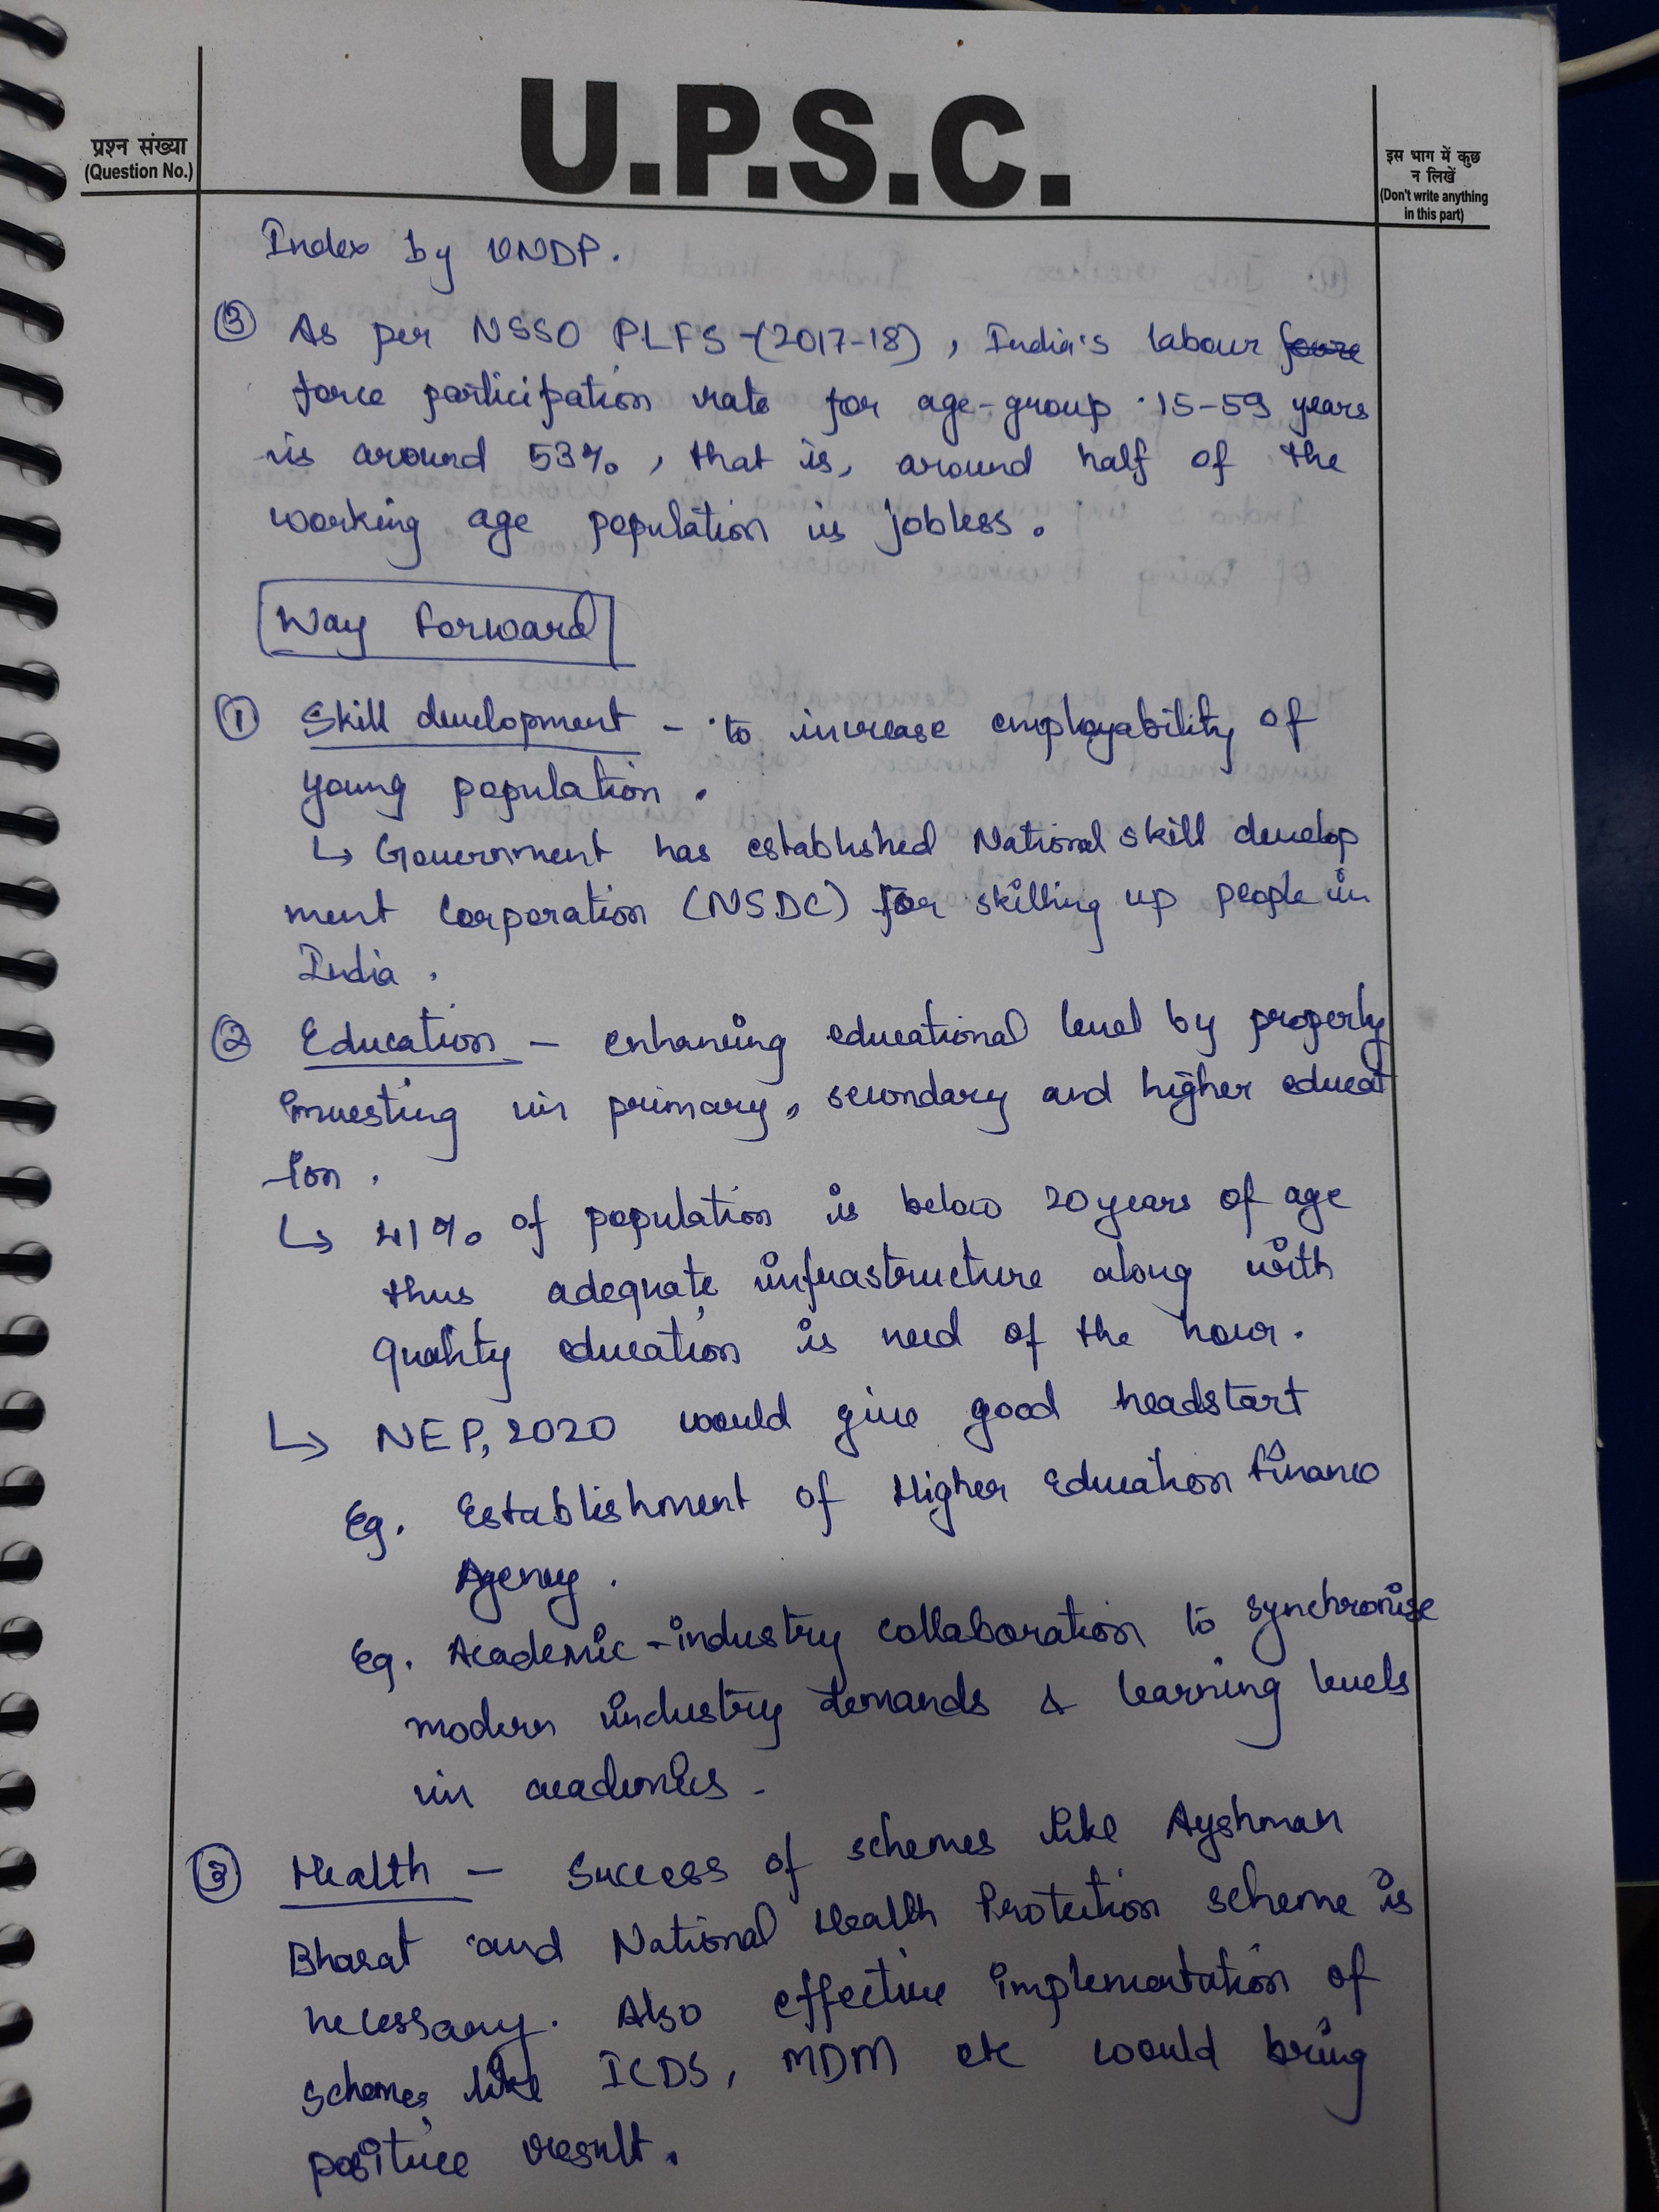 U.P.S.C.
प्रश्न संख्या
(Question No.)
इस भाग में कुछ
न लिखें
(Don't write anything
in this part)
Index by UNDP.
③ As per NSSO PLFS-(2017-18), India's labour
force participation rate for age-group 15-59 years
is around 53%, that is, around half of the
working age population is jobless.
Way Forward
① Skill development - to increase employability of
young population.
↳ Government has established National skill develop
ment Corporation (NSDC) for skilling up people in
India.
② Education - enhancing educational level by properly
investing in primary, secondary and higher educat
ion.
↳ 41% of population is below 20 years of age
thus adequate infrastructure along with
quality education is need of the hour.
↳ NEP, 2020 would give good headstart
Eg. Establishment of Higher Education Finance
Agency.
Eg. Academic-industry collaboration to synchronise
modern industry demands & learning levels
in academics -
③ Health - Success of schemes like Ayshman
Bharat and National Health Protection scheme is
necessary. Also effective implementation of
schemes like ICDS, MDM etc would bring
positive result.